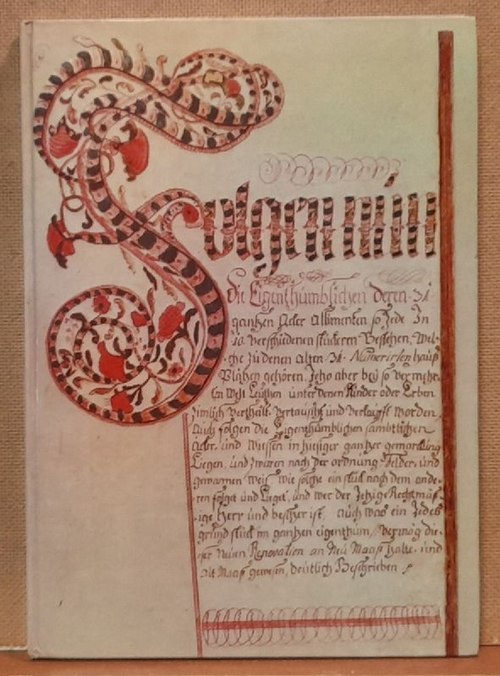 Folgen nún
Die Eigenthümblichen deren 31
gantzen Acker Allmenten so Jede In
10 verschiedenen stückeren Bestehen, Wel-
che Zu denen alten 31. Numerirten hauß
Plätzen gehören. Jeho aber beÿ so vermehr-
ten Leüthen unter denen Kinder oder Erben
Zimlich verthält, vertauscht und verkaufft worden.
Auch folgen die Eigenthümblichen sämbtlichen
äcker, und Wiessen in hiesiger gantzer gemarckung
Liegen, und zwaren nach der ordnung, felder, und
gewannen weiß wie solche ein stück nach dem ande-
ren folget und Lieget, und wer der Jetzige Rechtmäs-
ige Herr und besitzer ist, auch was ein Jedes
grund stück im gantzen eigenthum, vermög die-
ser Neüen Renovation an Neü Maaß halte, und
alt Maaß gewesen, deütlich Beschrieben